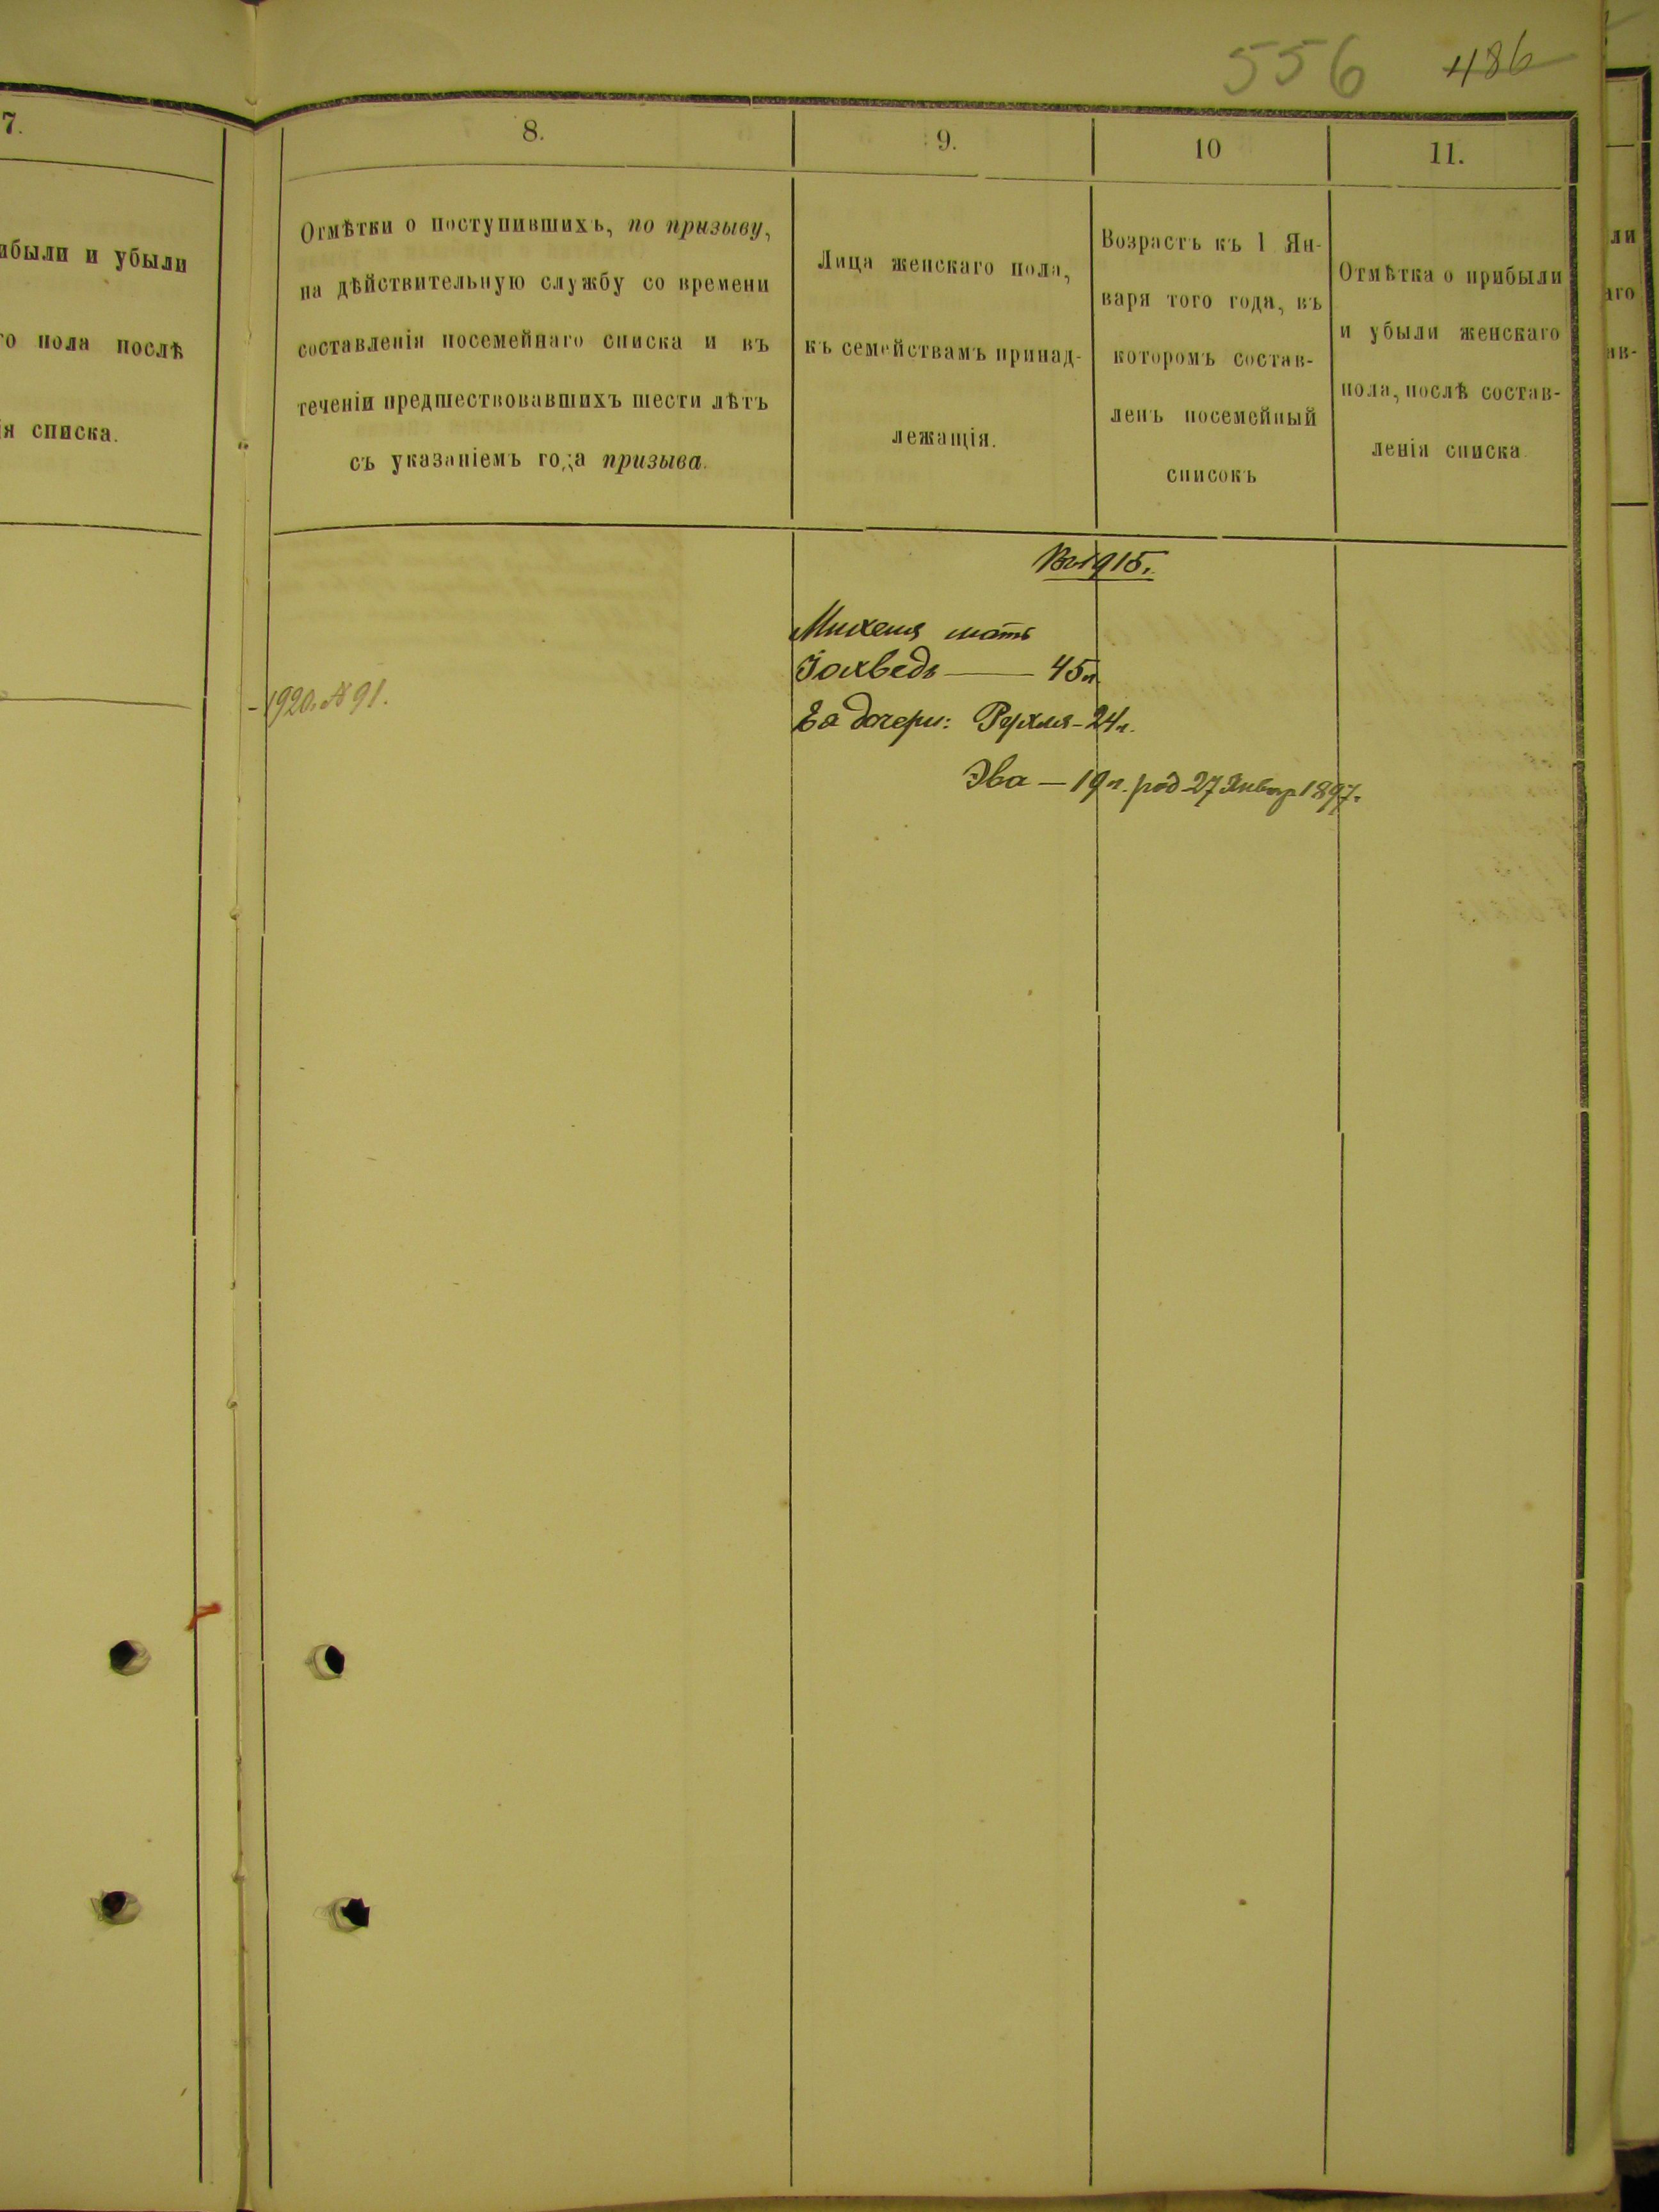 556 486
7.
ибыли и убыли
го пола послѣ
ія списка.
8.
Отмѣтки о поступившихъ, по призыву,
на дѣйствительную службу со времени
составленія посемейнаго списка и въ
теченіи предшествовавшихъ шести лѣтъ
съ указаніемъ года призыва.
9.
Лица женскаго пола,
къ семействамъ принад-
лежащія.
10
Возрастъ къ 1 Ян-
варя того года, въ
которомъ состав-
ленъ посемейный
списокъ
11.
Отмѣтка о прибыли
и убыли женскаго
пола, послѣ состав-
ленія списка
ли
аго
ав-
1920. № 91.
Въ 1915 г.
Михеля мать
Іохведъ — 45 л.
Ея дочери: Рухля - 24 г.
Эва — 19 л. род 27 Январ 1897 г.